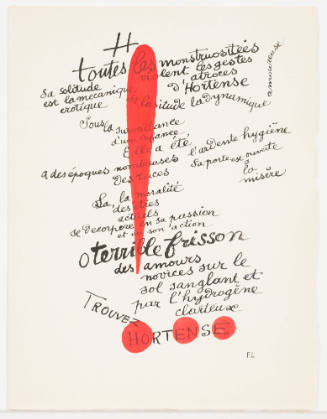 H
toutes les monstruosités
violent les gestes
d'atroces
d'Hortense
Sa solitude
est la mécanique
érotique
sa lassitude la dynamique
amoureuse
Sous la surveillance
d'une enfance
Elle a été
à des époques nombreuses
l'ardente hygiène
des races
Sa porte est ouverte
à
la
misère
Là, la moralité
des êtres
actuels
se décorpore en sa passion
et en son action.
O terrible frisson
des amours
novices sur le
sol sanglant et
par l'hydrogène
clarteux
TROUVEZ
HORTENSE
F.L